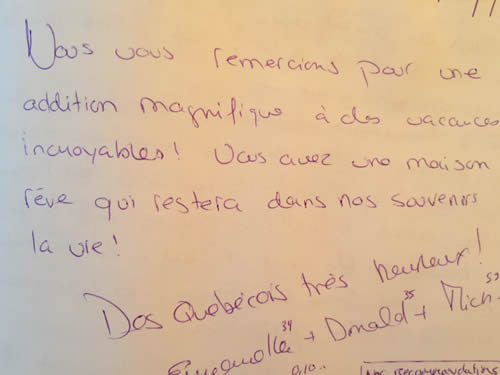 Nous vous remercions pour une
addition magnifique à des vacances
incroyables! Vous avez une maison
rêve qui restera dans nos souvenirs
la vie!
Des Québécois très heureux!
34 + Donald 35 + Mich